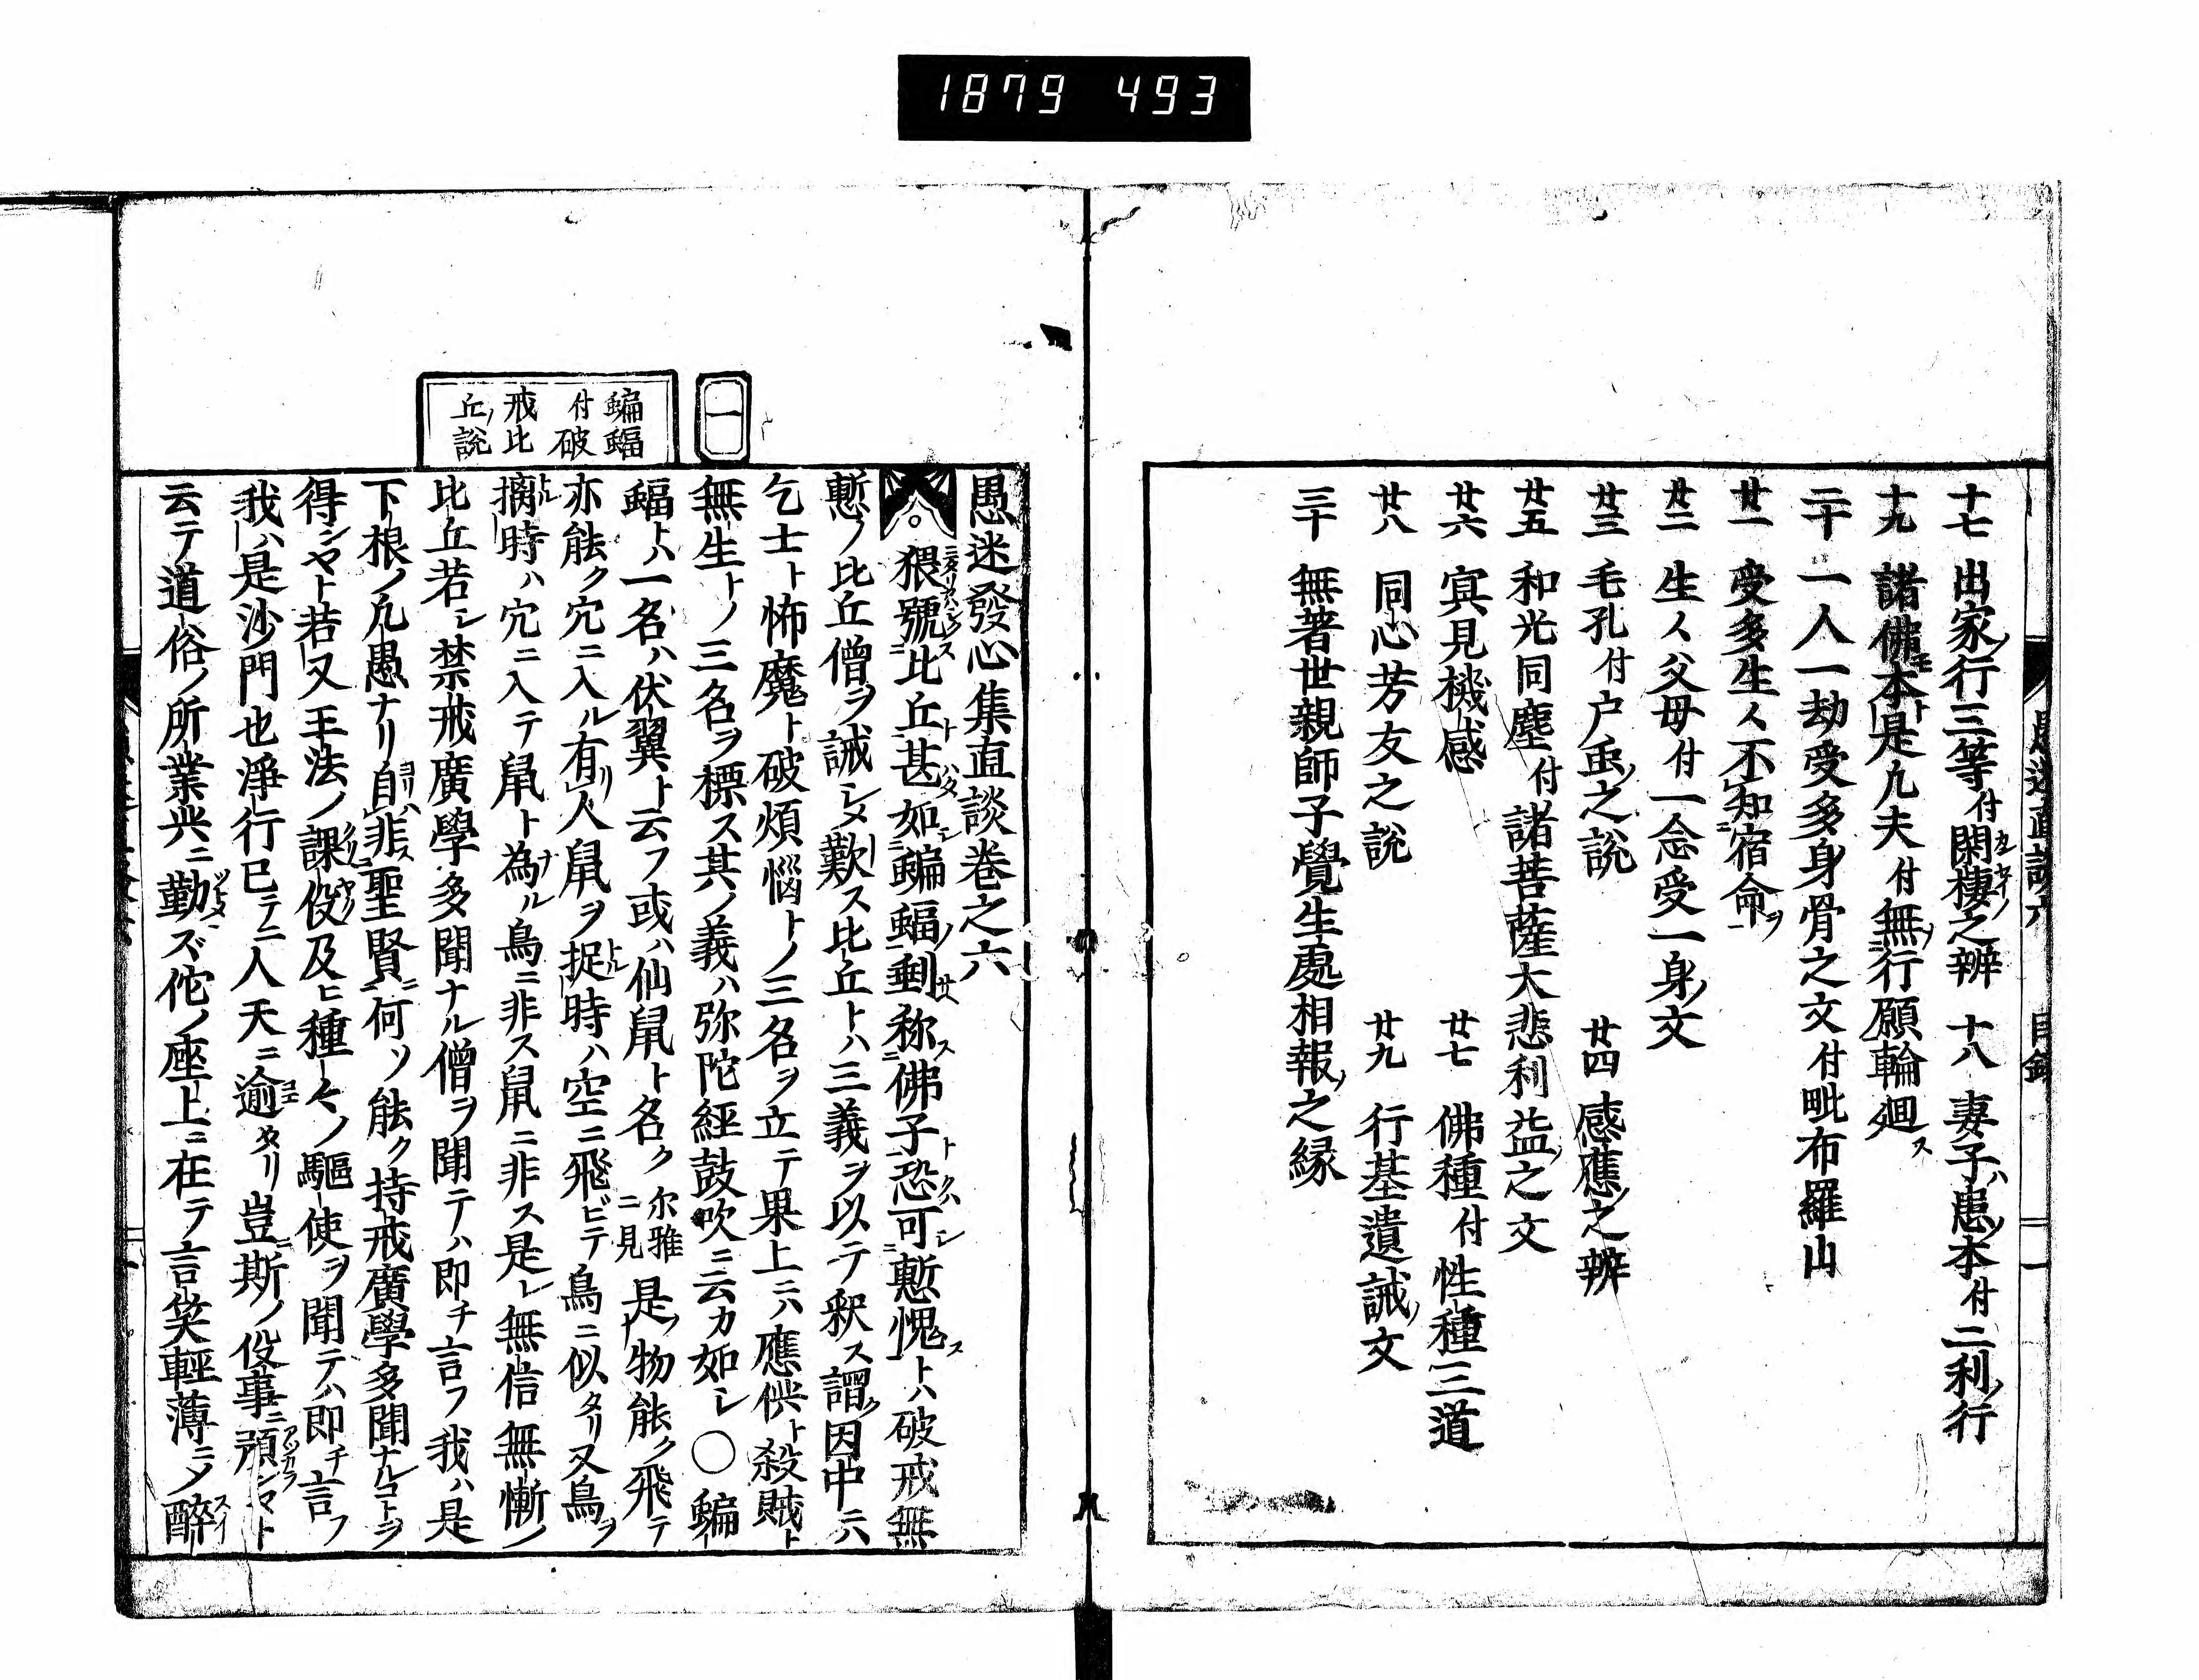 1879 493
愚迷直談六 目録 一
十七 出家ノ行三等付閑棲ノ之辨 十八 妻子ハ患ノ本付二利ノ行
十九 諸佛モ本ト是凡夫付無行願輪廻ス
二十 一人一劫受多身骨之文付毗布羅山
廿一 受多生人不知宿命ヲ
廿二 生人父母付一念受一身ノ文
廿三 毛孔付户虫ノ之説 廿四 感應ノ之辨
廿五 和光同塵付諸菩薩大悲利益ノ之文
廿六 冥見機感 廿七 佛種付性種三道
廿八 同心芳友之説 廿九 行基遺誡ノ文
三十 無著世親師子覺生處相報ノ之縁
愚迷發心集直談卷之六
猥號比丘甚如蝙蝠ノ剰称佛子恐可慙愧トハ破戒無
慙ノ比丘僧ヲ誡シメ歎ス比丘トハ三義ヲ以テ釈ス謂ク因中ニハ
乞士ト怖魔ト破煩惱トノ三名ヲ立テ果上ニハ應供ト殺賊ト
無生トノ三名ヲ標ス其ノ義ハ弥陀經鼓吹ニ云カ如シ○蝙
蝠トハ一名ハ伏翼ト云フ或ハ仙鼠ト名ク尔雅ニ見是ノ物能ク飛テ
亦能ク穴ニ入ル有ル人鼠ヲ捉ル時ハ空ニ飛ビテ鳥ニ似タリ又鳥ヲ
摛ル時ハ穴ニ入テ鼠ト為ル鳥ニ非ス鼠ニ非ス是レ無信無慚ノ
比丘若シ禁戒廣學多聞ナル僧ヲ聞テハ即チ言フ我ハ是
下根ノ凡愚ナリ自非聖賢何ソ能ク持戒廣學多聞ナルコトヲ
得ンヤト若又王法ノ課役及ヒ種々ノ驅使ヲ聞テハ即チ言フ
我ハ是沙門也淨行已テニ人天ニ逾タリ豈斯ノ役事ニ預ンマト
云テ道俗ノ所業共ニ勤ズ佗ノ座上ニ在テ言笑輕薄ニノ醉
一
蝙蝠
付破
戒比
丘ノ説